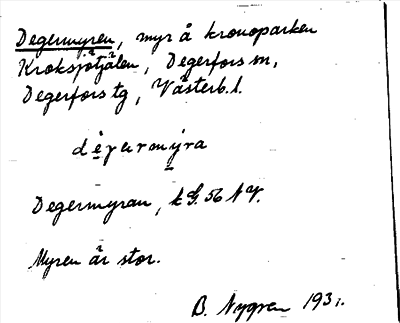 Degermyren, myr å kronoparken
Kroksjötjälen, Degerfors sn,
Degerfors tg, Västerb. l.
Degermyran, k G. 56 NV.
Myren är stor.
B. Nygren 1931.